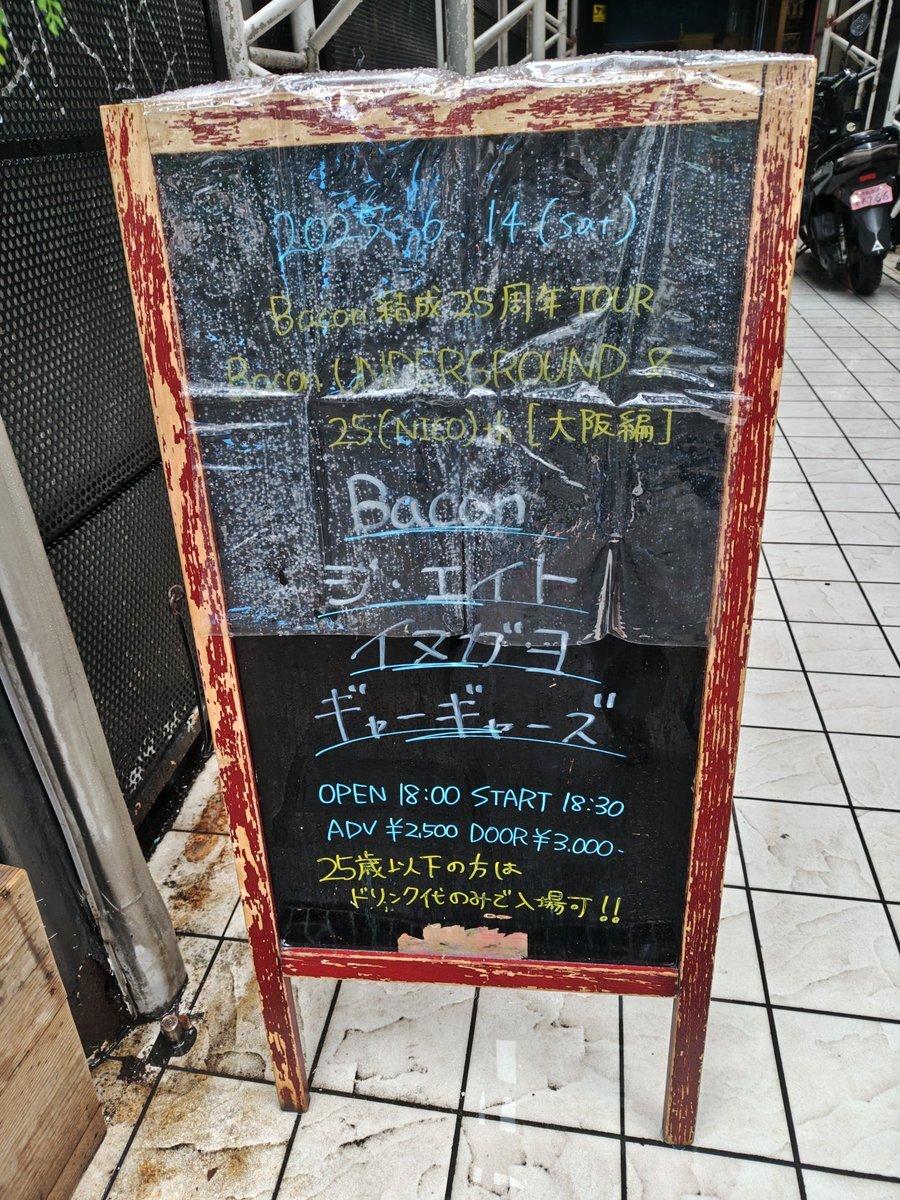 2025. 6. 14 (Sat)
Bacon 結成25周年 TOUR
Bacon UNDERGROUND &
25(NICO)th [大阪編]
Bacon
ジ・エイト
イヌガヨ
ギャーギャーズ
OPEN 18:00 START 18:30
ADV ¥2,500 DOOR ¥3,000-
25歳以下の方は
ドリンク代のみで入場可!!